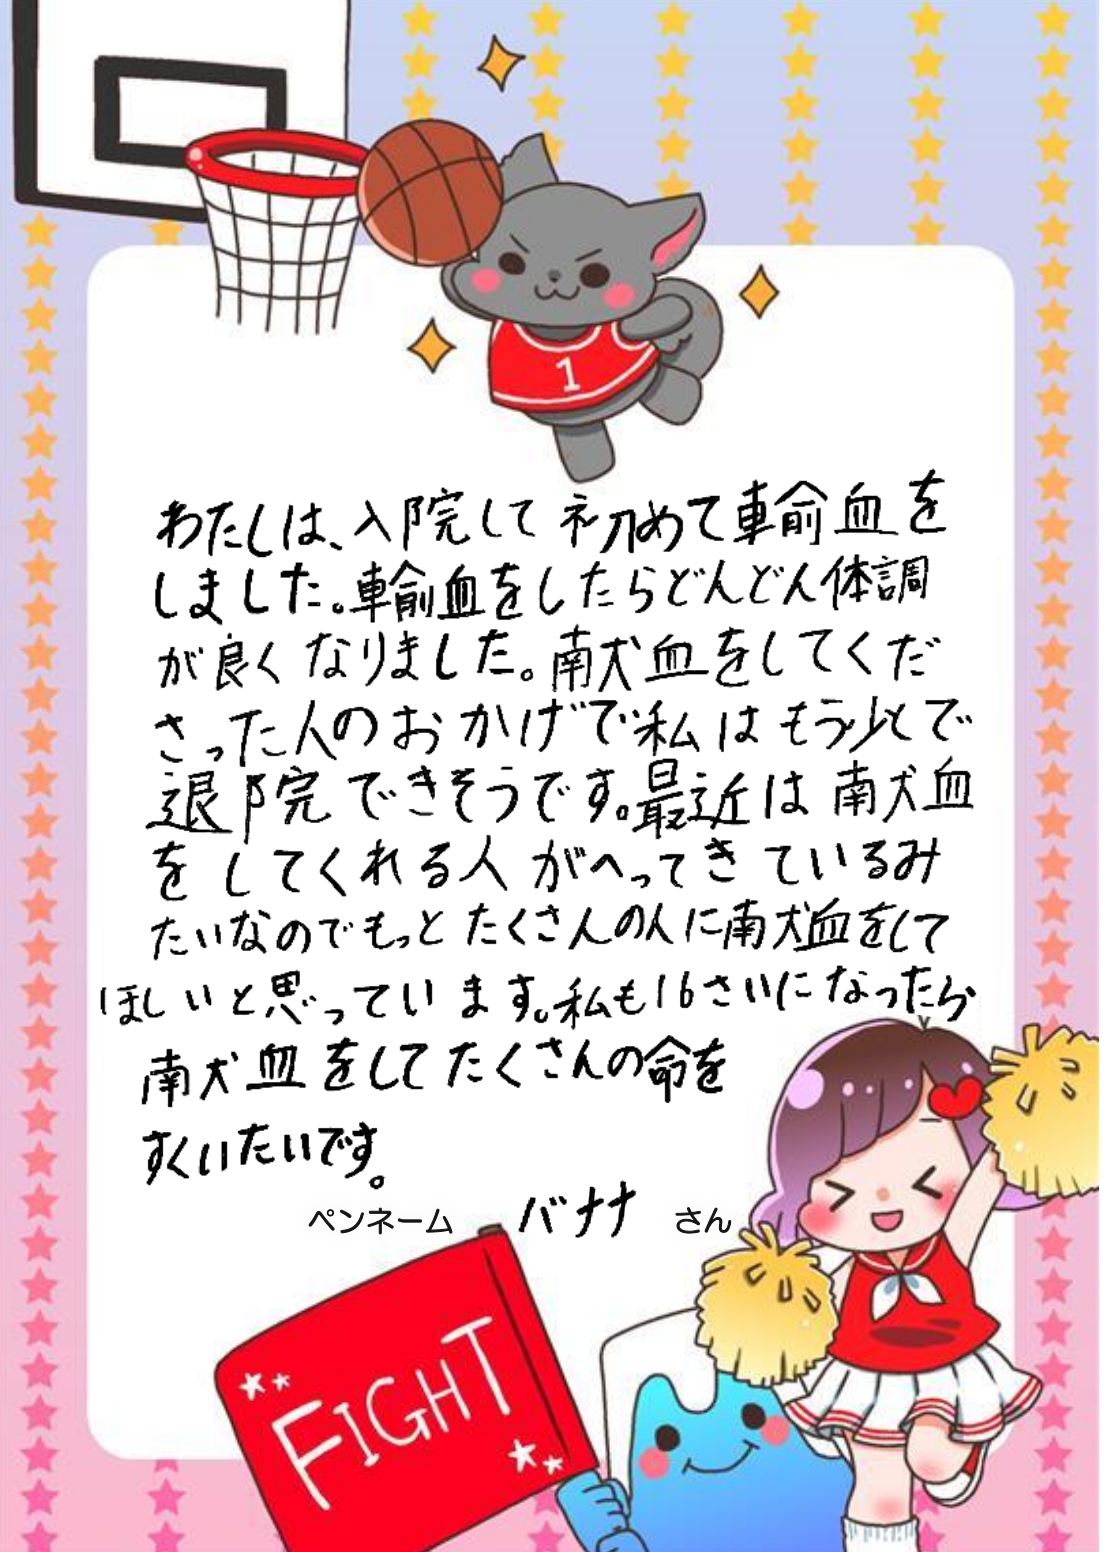 1
わたしは、入院して初めて輸血を
しました。輸血をしたらどんどん体調
が良くなりました。献血をしてくだ
さった人のおかげで私はもう少しで
退院できそうです。最近は献血
をしてくれる人がへってきているみ
たいなのでもっとたくさんの人に献血をして
ほしいと思っています。私も16さいになったら
献血をしてたくさんの命を
すくいたいです。
ペンネーム バナナ さん
FIGHT